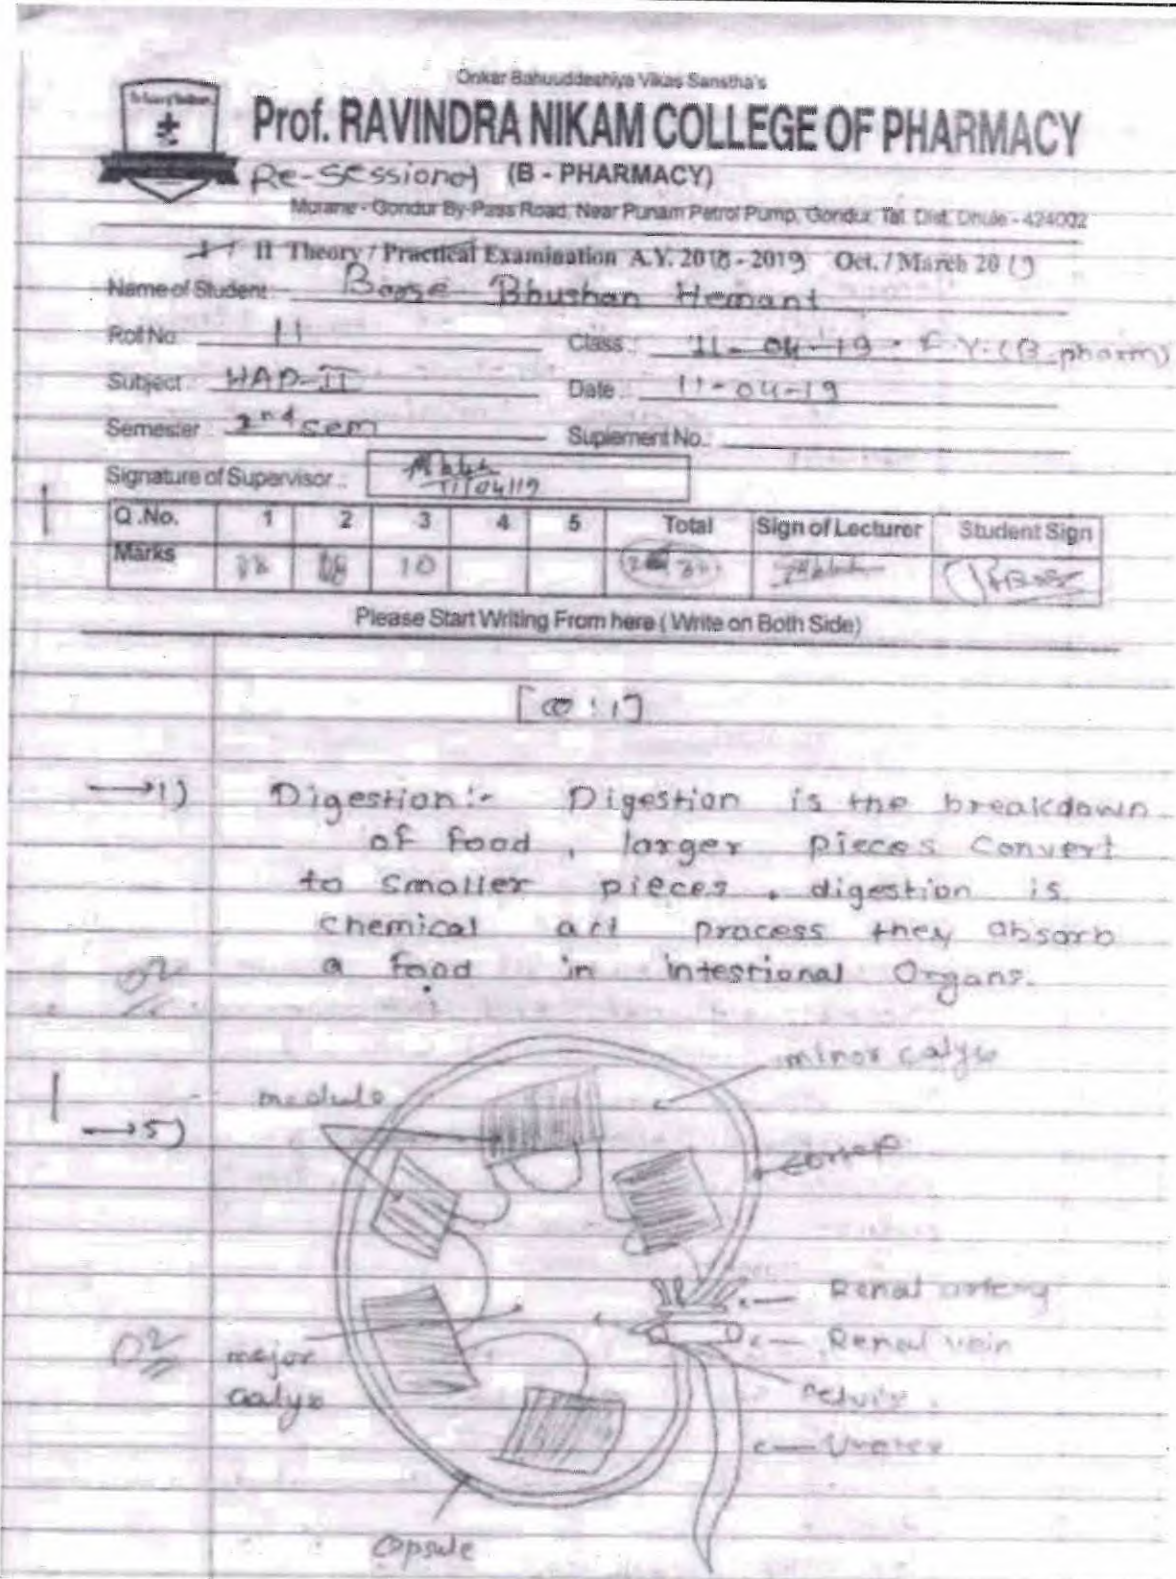 Onkar Bahuuddeshiya Vikas Sanstha's
Prof. RAVINDRA NIKAM COLLEGE OF PHARMACY
Re-Sessional (B - PHARMACY)
Morane - Gondur By-Pass Road, Near Punam Petrol Pump, Gondur, Tal. Dist. Dhule - 424002
II Theory / Practical Examination A.Y. 2018 - 2019 Oct. / March 2019
Name of Student Bhushan Hemant
Roll No. 11 Class : 11-04-19 . F.Y.(B-pharm)
Subject : HAP-II Date : 11-04-19
Semester : 2nd sem Suplement No.:
Signature of Supervisor : 11/04/19
Q.No. 1 2 3 4 5 Total Sign of Lecturer Student Sign
Marks 10
Please Start Writing From here ( Write on Both Side)
[Q:1]
→1) Digestion:- Digestion is the breakdown
of food , larger pieces convert
to smaller pieces . digestion is
chemical act process they absorb
02 a food in intestional Organs.
minor calyx
medula
→5)
cortex
Renal artery
Renal vein
02 major
calyx
pelvis
Ureter
capsule